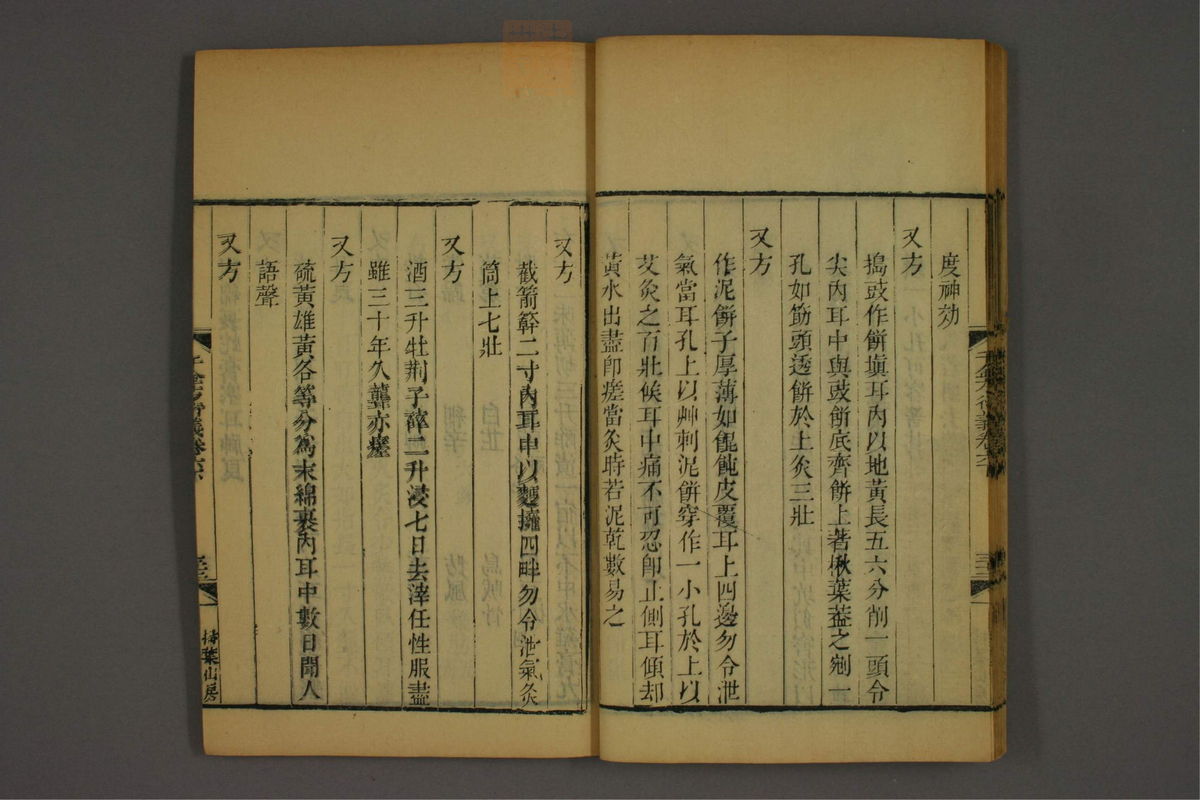 度神効
又方
搗豉作餅塡耳內以地黃長五六分削一頭令
尖內耳中與豉餅底齊餅上著楸葉蓋之剜一
孔如筯頭透餅於上灸三壯
又方
作泥餅子厚薄如餛飩皮覆耳上四邊勿令泄
氣當耳孔上以艸刺泥餅穿作一小孔於上以
艾灸之百壯候耳中痛不可忍卽止側耳傾却
黃水出盡卽瘥當灸時若泥乾數易之
又方
截箭簳二寸內耳中以麵擁四畔勿令泄氣灸
筒上七壯
又方
酒三升牡荆子碎二升浸七日去滓任性服盡
雖三十年久聾亦瘥
又方
硫黃雄黃各等分爲末綿裹內耳中數日聞人
語聲
又方
千金方衍義卷六
掃葉山房